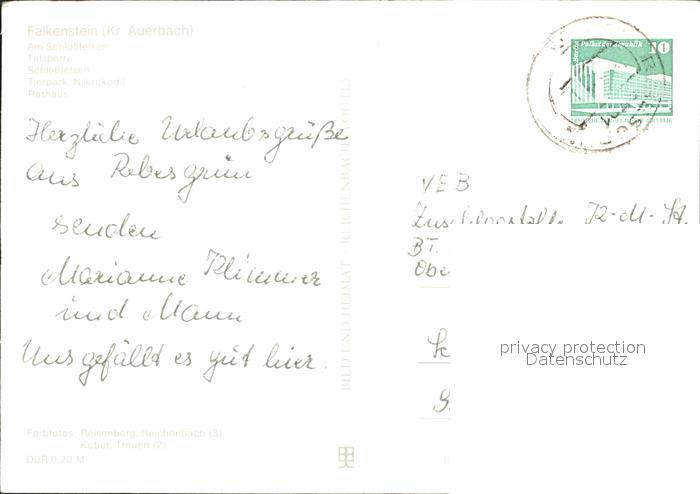 Falkenstein (Kr. Auerbach)
Am Schloßfelsen
Talsperre
Schloßfelsen
Tierpark, Nilkrokodil
Rathaus
Herzliche Urlaubsgrüße
aus Rebesgrün
senden
Marianne Klimmer
und Mann
Uns gefällt es gut hier.
Farbfotos: Reisenberg, Reichenbach (3)
Kober, Treuen (2)
DDR 0,20 M
BILD UND HEIMAT REICHENBACH (VOGTL)
Berlin Palast der Republik 10
VEB
K-M-St.
BT.
Obe
privacy protection
Datenschutz